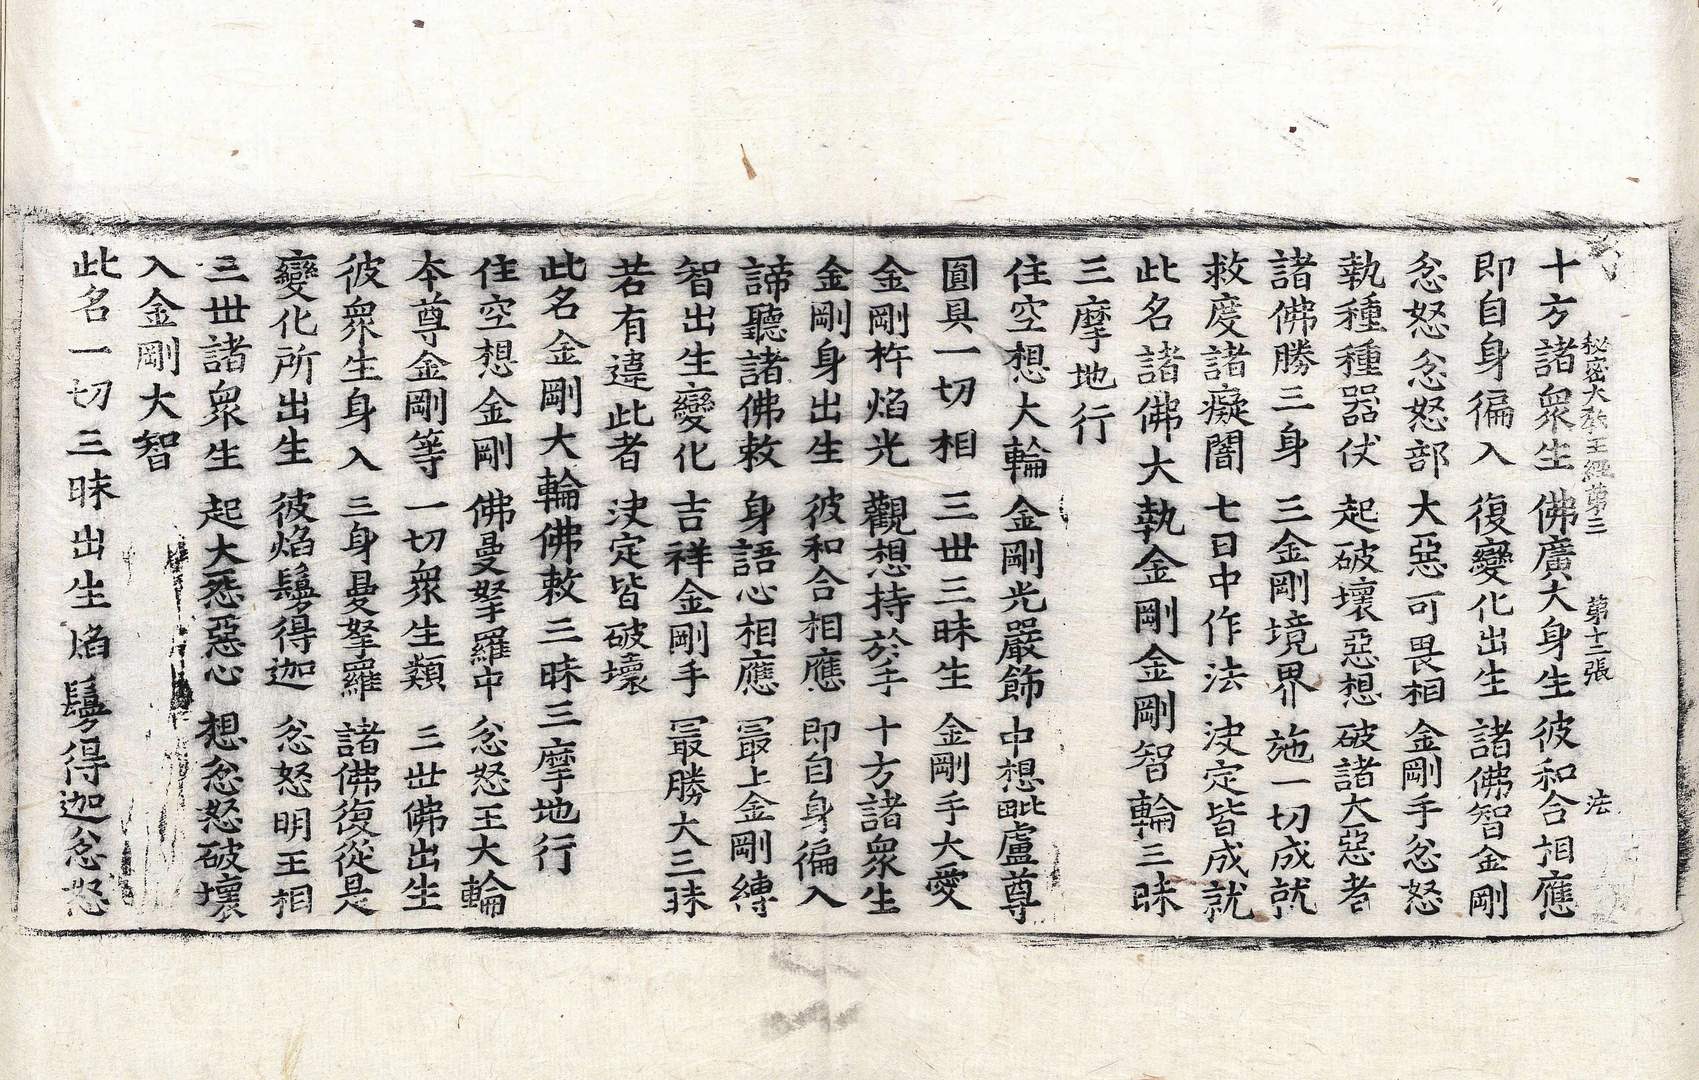 秘密大教王經第三 第十二張 法
十方諸衆生 佛廣大身生 彼和合相應
即自身徧入 復變化出生 諸佛智金剛
忿怒忿怒部 大惡可畏相 金剛手忿怒
執種種器仗 起破壞惡想 破諸大惡者
諸佛勝三身 三金剛境界 施一切成就
救度諸癡闇 七日中作法 決定皆成就
此名諸佛大執金剛金剛智輪三昧
三摩地行
住空想大輪 金剛光嚴飾 中想毗盧尊
圓具一切相 三丗三昧生 金剛手大愛
金剛杵焰光 觀想持於手 十方諸衆生
金剛身出生 彼和合相應 即自身徧入
諦聽諸佛敕 身語心相應 冣上金剛縛
智出生變化 吉祥金剛手 冣勝大三昧
若有違此者 決定皆破壞
此名金剛大輪佛敕三昧三摩地行
住空想金剛 佛曼拏羅中 忿怒王大輪
本尊金剛等 一切衆生類 三丗佛出生
彼衆生身入 三身曼拏羅 諸佛復從是
變化所出生 彼焰鬘得迦 忿怒明王相
三丗諸衆生 起大惡惡心 想忿怒破壞
入金剛大智
此名一切三昧出生焰鬘得迦忿怒